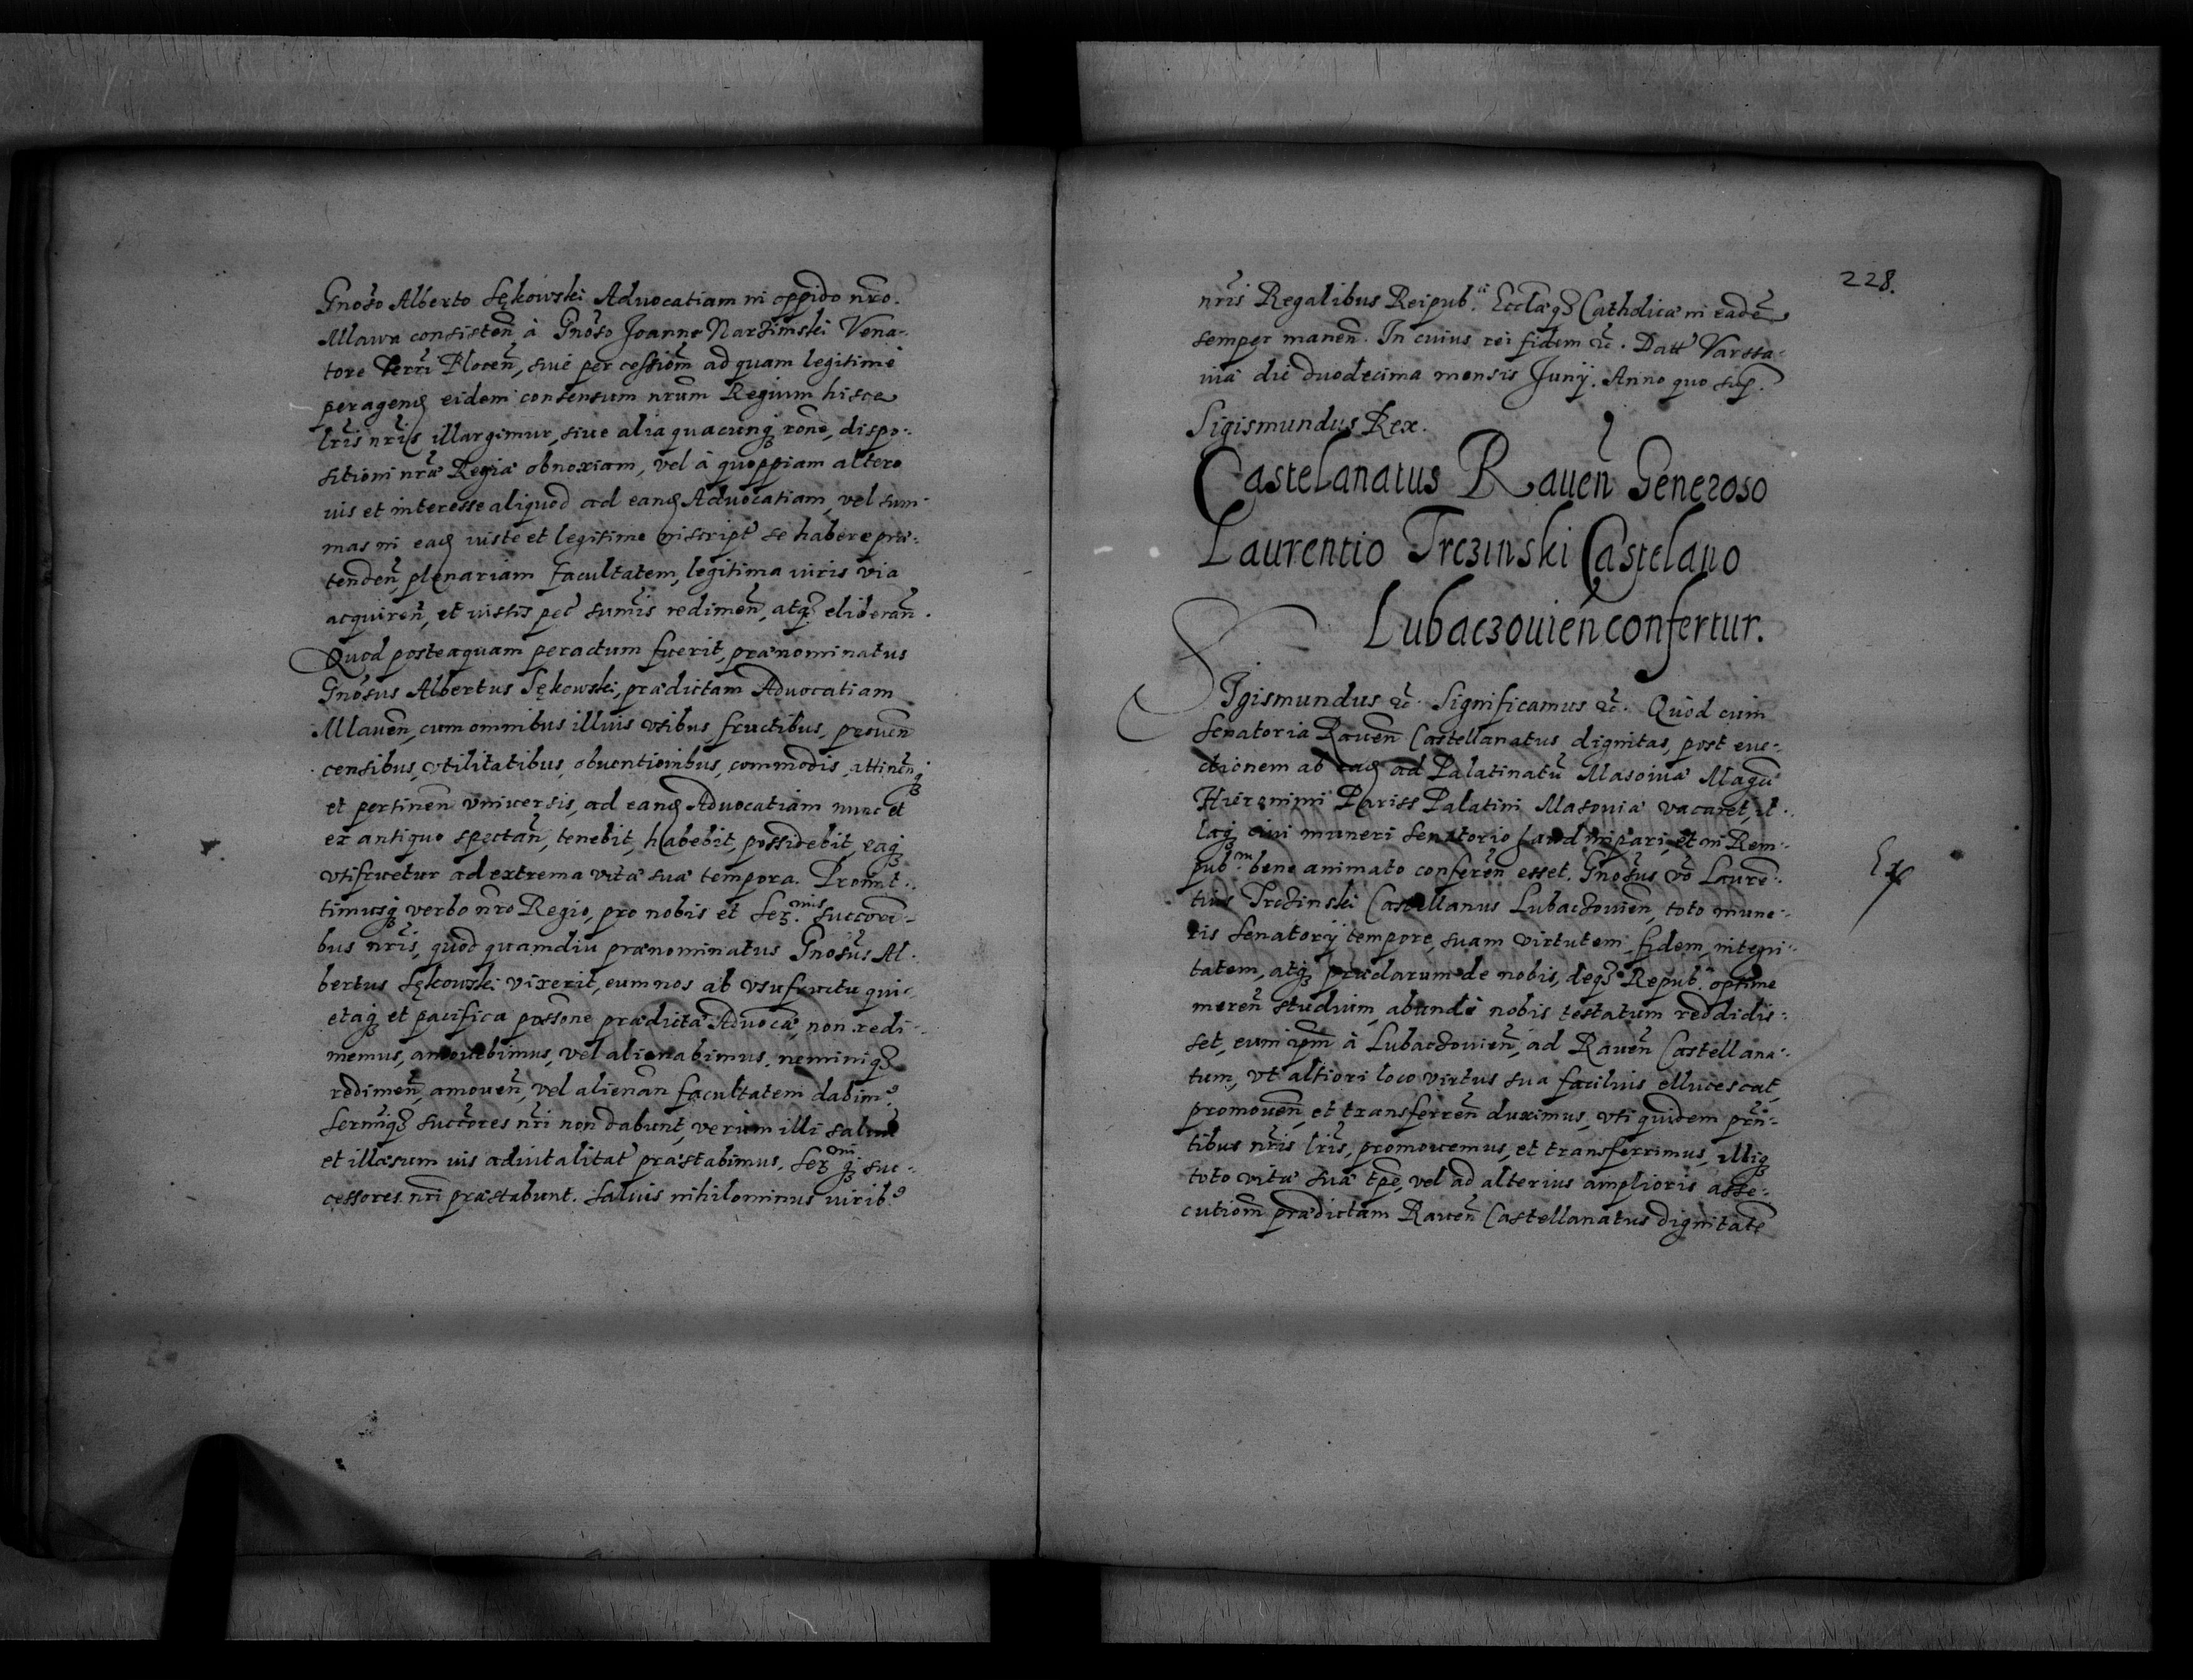 Gnoso Alberto Sękowski Advocatiam in oppido nro.
Mlawa consisten̄ à Gnoso Joanne Narzimski Vena-
tore Terræ Plocen̄, siue per cessiom̄ ad quam legitime
peragenđ eidem consensum nrūm Regium hisce
lrīs nrīs illargimur, siue alia quacunq; rōne, dispo-
sitioni nrǣ Regiæ obnoxiam, vel à quoppiam altero
ius et interesse aliquod ad eanđ Advocatiam, vel sum-
mas in eađ iuste et legitime inscript̄ se habere præ-
tenden̄, plenariam facultatem, legitima iuris via
acquiren̄, et iustis pec̄ sum̄is redimen̄, atq; eliberan̄.
Quod posteaquam peractum fuerit, prænominatus
Gnosus Albertus Sękowski, prædictam Advocatiam
Mlauen̄, cum omnibus illius vtibus, fructibus, prouen̄
censibus, vtilitatibus, obuentionibus, commodis, attinen̄q;
et pertinen̄ vniuersis, ad eanđ Advocatiam nunc et
ex antiquo spectan̄, tenebit, habebit, possidebit, eaq;
vtifruetur ad extrema vitæ suæ tempora. Promit-
timusq; verbo nrō Regio, pro nobis et Ser.mis succorı̄-
bus nrīs, quod quamdiu prænominatus Gnosus Al-
bertus Sękowski vixerit, eum nos ab vsufructu qui-
etaq; et pacifica possōne prædictæ Advocǣ, non redi-
memus, amouebimus, vel alienabimus, neminiq;
redimen̄, amouen̄, vel alienan̄ facultatem dabim9.
Sermiq; succores nrī non dabunt, verum illi saluū
et illæsum ius aduitalitat̄ præstabimus, Ser.miq; suc-
cessores nrī præstabunt. Saluis nihilominus iurib9
228.
nrīs Regalibus Reipub.æ Ecclǣq; Catholicæ in eadē
semper manen̄. In cuius rei fidem &c. Datt̄ Varssa-
uiæ die duodecima mensis Junij. Anno quo sup.
Sigismundus Rex.
Castelanatus Rauen̄ Generoso
Laurentio Trczinski Castelano
Lubaczouien̄ confertur.
Sigismundus &c. Significamus &c. Quod cum
senatoria Rauen̄ Castellanatus dignitas, post eue-
ctionem ab eađ ad Palatinatū Masouiæ Magcī
Hieronimi Pariss Palatini Masouiæ vacaret, il-
laq; viri muneri senatorio haud impari, et in Rem-
pub.m bene animato conferen̄ esset. Gnosus vō Lauren̄-
tius Trczinski Castellanus Lubaczouien̄, toto mune-
ris senatorij tempore, suam virtutem, fidem, integri-
tatem, atq; præclarum de nobis, deq; Repub.a optime
meren̄ studium, abunde nobis testatum reddidis-
set, eum ipm̄ à Lubaczouien̄, ad Rauen̄ Castellana-
tum, vt altiori loco virtus sua facilius ellucescat,
promouen̄, et transferren̄ duximus, vti quidem prn̄-
tibus nrīs lrīs, promouemus, et transferrimus, illiq;
toto vitæ suæ tpē, vel ad alterius amplioris asse-
cutiom̄ prædictam Rauen̄ Castellanatus dignitatē
Ex